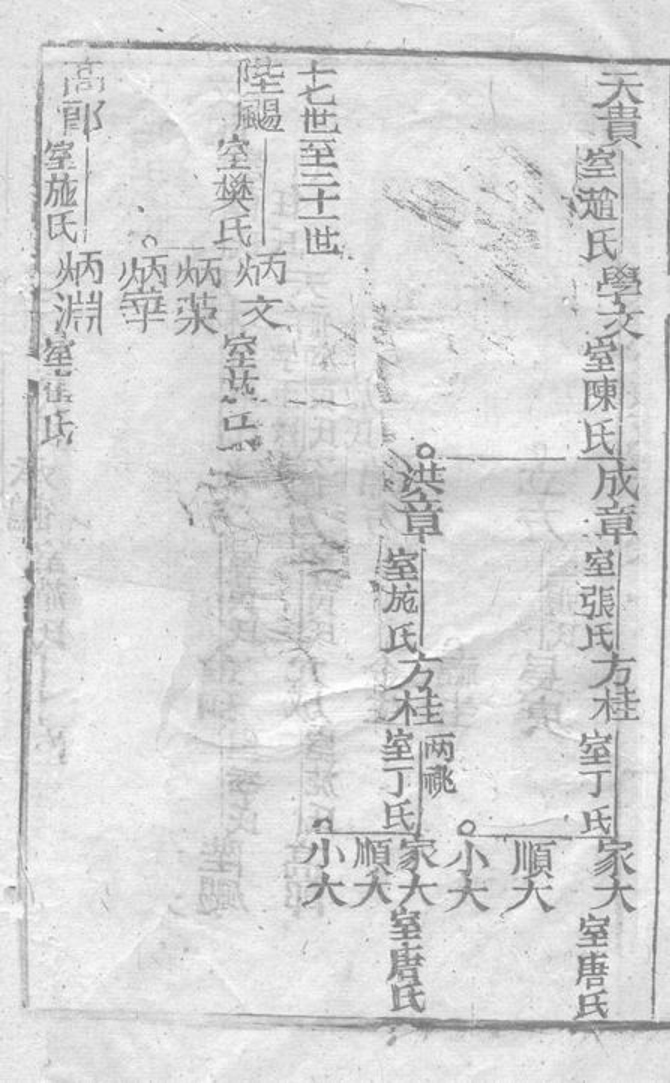 天貴 室趙氏 學文 室陳氏 成章 室張氏 方桂 室丁氏 家大 室唐氏
順大
小大
洪章 室施氏 方桂 兩祧 室丁氏 家大 室唐氏
順大
小大
十七世至二十一世
陞颺 室樊氏 炳文 室
炳荣
炳華
高郎 室施氏 炳淵 室 氏